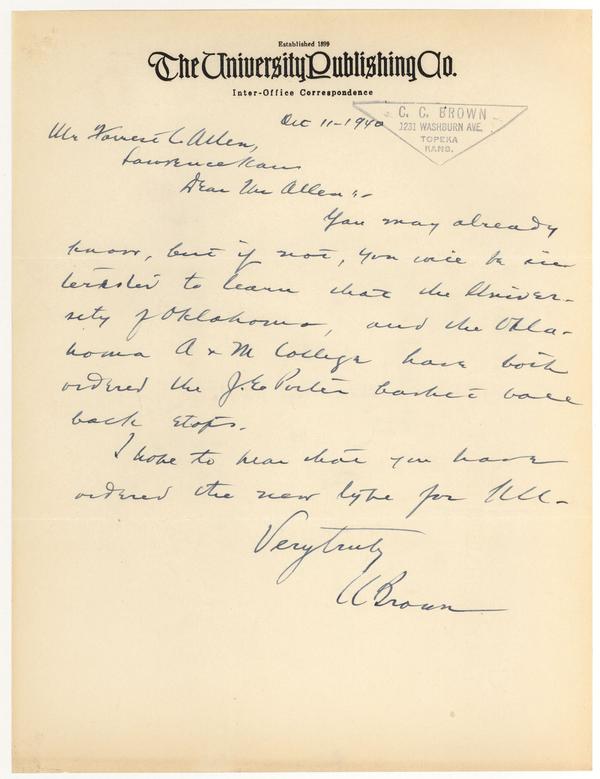 Established 1899
The University Publishing Co.
Inter-Office Correspondence
C. C. BROWN
1231 WASHBURN AVE.
TOPEKA
KANS.
Oct 11-1940
Mr Forrest C Allen,
Lawrence Kans
Dear Mr Allen:-
You may already
know, but if not, you will be in-
terested to learn that the Univer-
sity of Oklahoma, and the Okla-
homa A & M College have both
ordered the J. E. Porter basket ball
back stops.
I hope to hear that you have
ordered the new type for KU-
Very truly
CC Brown